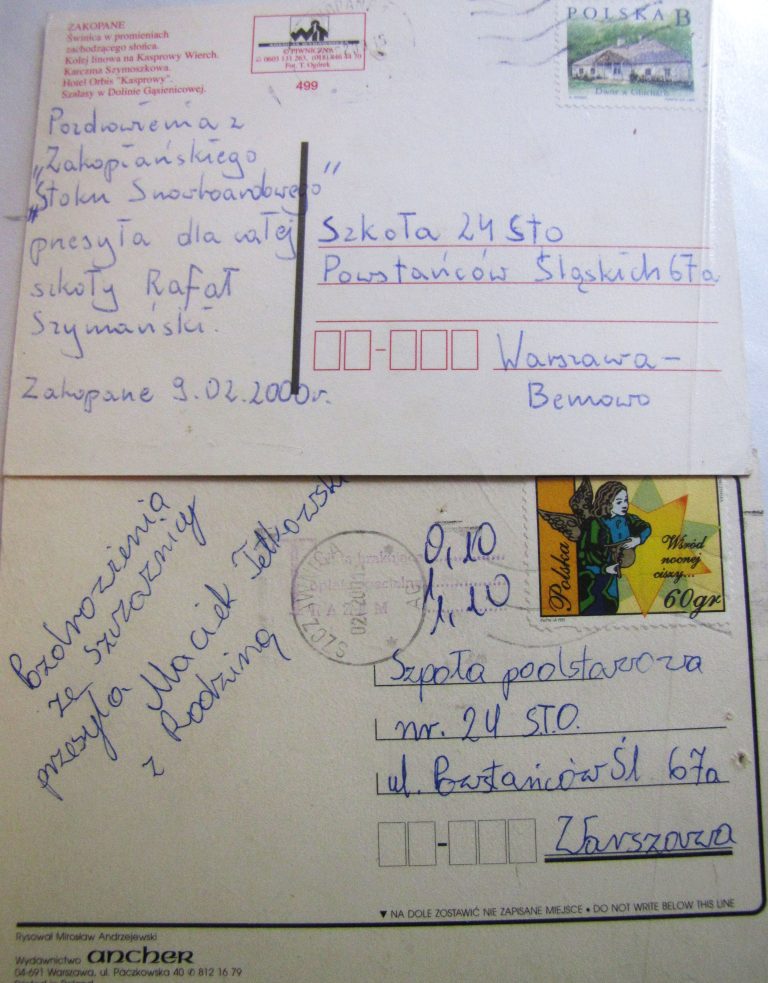 ZAKOPANE
Świnica w promieniach
zachodzącego słońca.
Kolej linowa na Kasprowy Wierch.
Karczma Szymoszkowa.
Hotel Orbis "Kasprowy".
Szałasy w Dolinie Gąsienicowej.
© PIWNICZNA
Fot. T. Ogórek
499
POLSKA B
Dwór w Gluchach
Pozdrowienia z
„Zakopiańskiego
Stoku Snowboardowego"
przesyła dla całej
szkoły Rafał
Szymański.
Zakopane 9.02.2000r.
Szkoła 24 Sto
Powstańców Śląskich 67a
Warszawa-
Bemowo
Pozdrowienia
ze Szczawnicy
przesyła Maciek
z Rodziną
SZCZAWNICA
0,10
1,10
Polska
Wśród
nocnej
ciszy...
60gr
Szpoła podstawowa
nr. 24 S.T.O.
ul. Powstańców Śl 67a
Warszawa
▼ NA DOLE ZOSTAWIĆ NIE ZAPISANE MIEJSCE • DO NOT WRITE BELOW THIS LINE
Rysował Mirosław Andrzejewski
Wydawnictwo ancher
04-691 Warszawa, ul. Paczkowska 40 ✆ 812 16 79